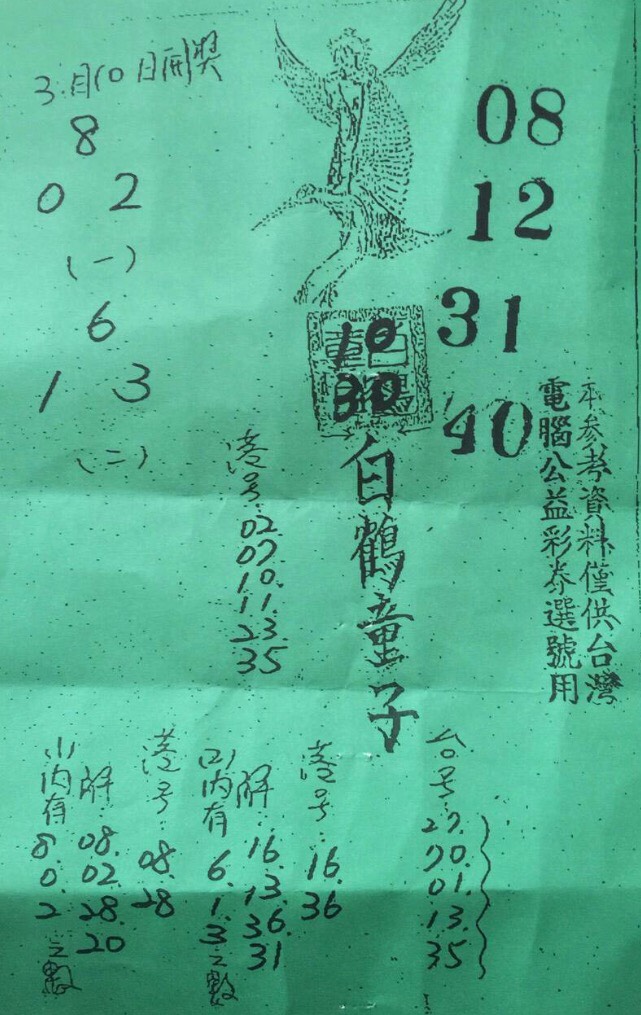 3月10日開獎
8
0 2
(一)
6
1 3
(二)
08
12
31
40
10
30
白鶴童子
本參考資料僅供台灣
電腦公益彩券選號用
港号:
02.
07.
10.
11.
23.
35
台号:
27.
70.
01.
13.
35
港号:
16.
36
解:
16.
13.
36.
31
(2)內有
6.
1.
3之數
港号:
08.
28
解:
08.
02.
28.
20
(1)內有
8.
0.
2之數